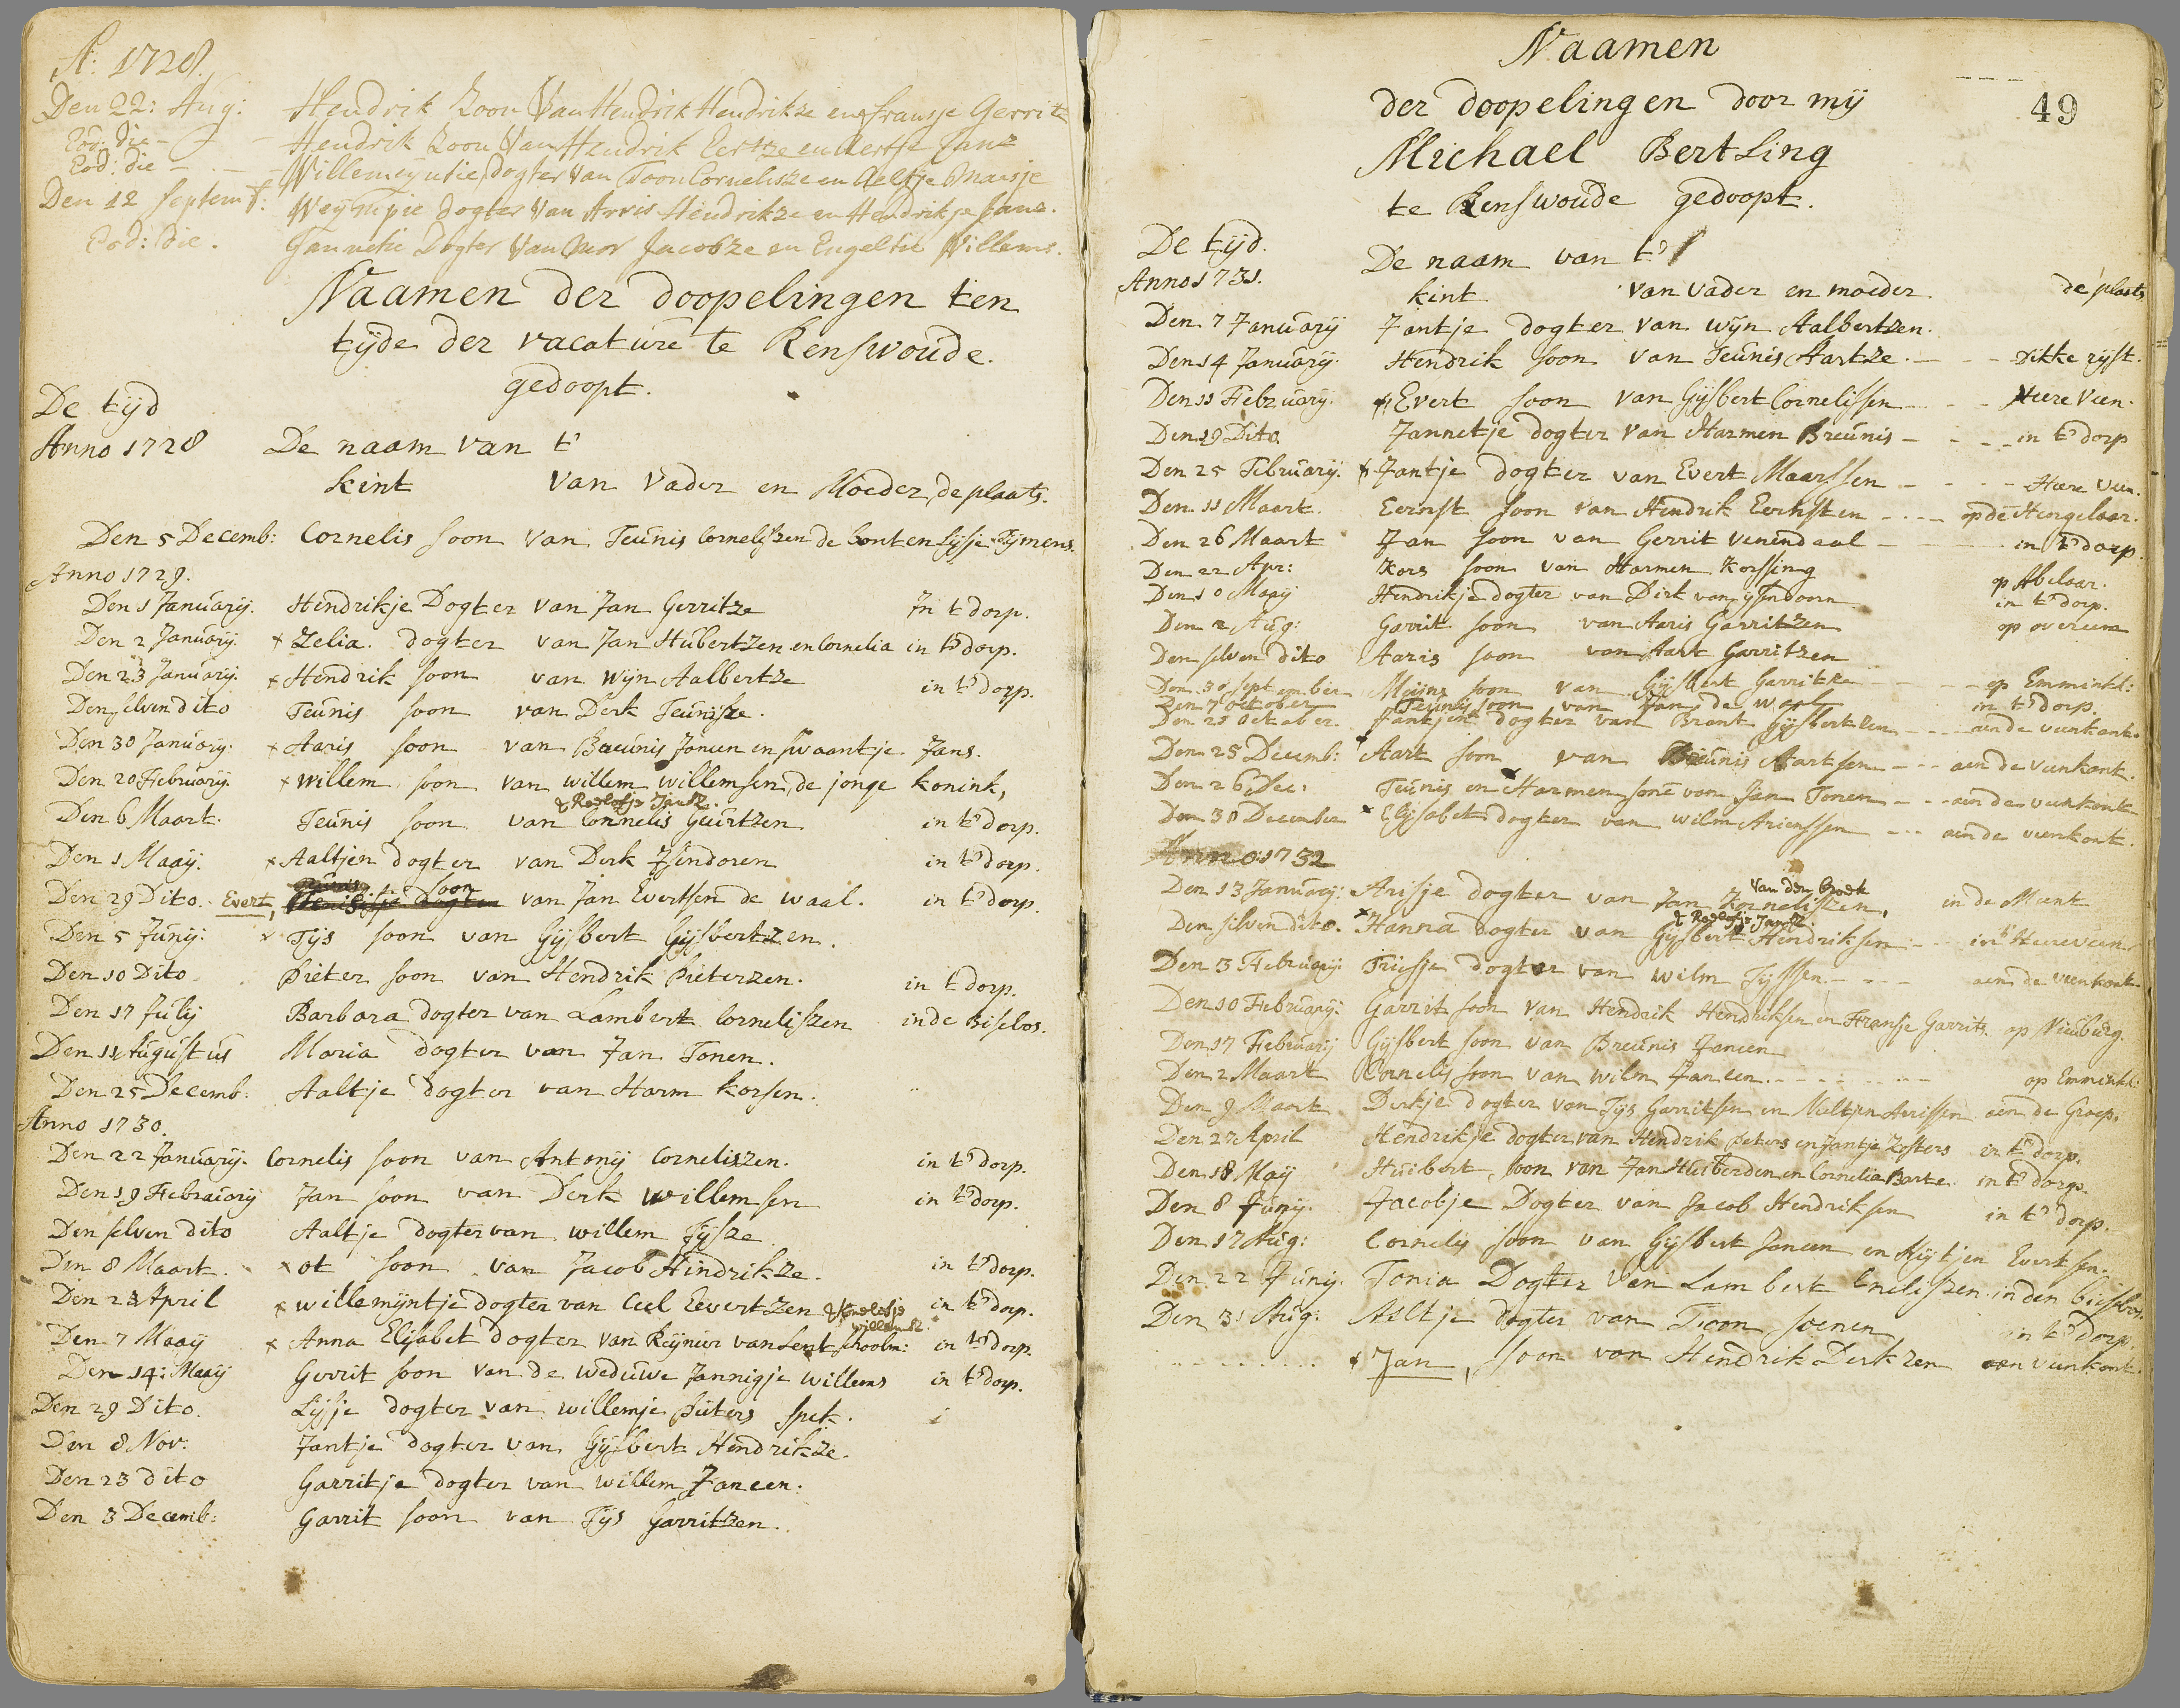 A: 1728.
Den 22: Aug: Hendrik Zoon Van Hendrik Hendrikze en fransje Gerritz
Eod: die - Hendrik Zoon Van Hendrik Eertze en Aertje Janz
Eod: die - Willemeyntie Dogter Van Toon Cornelisze en Aeltje
Den 12 Septemb: Weympie Dogter Van Arris Hendrikze en Hendrikje Janz.
Eod: die. Jannetie Dogter Van Jacobze en Engeltie Willems.
Naamen der doopelingen ten
tijde der vacature te Renswoude.
gedoopt.
De tijd
Anno 1728 De naam van t'
kint van vader en Moeder, de plaats.
Den 5 Decemb: Cornelis soon van Teunis Cornelissen de bont en Lijsje Tijmens.
Anno 1729.
Den 1 Januarij. Hendrikje Dogter van Jan Gerritze In t dorp.
Den 2 Januarij. x Zelia. dogter van Jan Hubertzen en Cornelia in t' dorp.
Den 23 Januarij. x Hendrik soon van Wijn Aalbertze in t' dorp.
Den selven dito Teunis soon van Derk Teunisze.
Den 30 Januarij. x Aaris soon van Breunis Jancen en swaantje Jans.
Den 20 February. x willem soon van willem willemsen, de jonge konink,
& Roelofje Jansz.
Den 6 Maart. Teunis soon van Cornelis Geurtzen in t' dorp.
Den 1 Maaij. x Aaltjen dogter van Derk Isendoren in t' dorp.
Den 29 Dito. Evert, soon van Jan Evertsen de waal. in t' dorp.
Den 5 Junij: x Tijs soon van Gijsbert Gijsbertzen.
Den 10 Dito Pieter soon van Hendrik Pieterzen. in t dorp.
Den 17 Julij Barbara dogter van Lambert Cornelissen in de Biselos.
Den 11 Augustus Maria dogter van Jan Tonen.
Den 25 Decemb. Aaltje dogter van Harm korsen.
Anno 1730.
Den 22 Januarij. Cornelis soon van Antonij Corneliszen. in t' dorp.
Den 19 Februarij Jan soon van Derk Willemsen in t' dorp.
Den selven dito Aaltje dogter van willem Tijsze
Den 8 Maart. x ot soon van Jacob Hindrikze. in t' dorp.
Den 23 April x willemijntje dogter van Ceel Eevertzen & Roelofje willemsz. in t' dorp.
Den 7 Maaij x Anna Elisabet dogter van Reijnier van Lent schoolm: in t' dorp.
Den 14: Maaij Gerrit soon van de weduwe Jannigje willems in t' dorp.
Den 29 Dito. Lijsje dogter van willemje Pieters spek.
Den 8 Nov: Jantje dogter van Gijsbert Hendrikze.
Den 23 dito Garritje dogter van willem Jancen.
Den 3 Decemb: Garrit soon van Tijs Garritzen.
Naamen
der doopelingen door mij
Michael Bertling
te Renswoude gedoopt.
49
De tijd.
Anno 1731. De naam van t'
kint van vader en moeder. de plaats
Den 7 Januarij Jantje dogter van wijn Aalbertzen.
Den 14 Januarij. Hendrik soon van Teunis Aartze. - - - Dikke rijst.
Den 11 February. Evert soon van Gijsbert Cornelissen - - - Heere veen.
Den 19 Dito. Jannetje dogter van Harmen Breunis - - - in t' dorp
Den 25 February. x Jantje dogter van Evert Maarssen - - - Heere veen.
Den 11 Maart. Eernst soon van Hendrik Eernsten - - - op de Hengelaar.
Den 26 Maart Jan soon van Gerrit Venendaal - - - in t' dorp.
Den 22 Apr: Kors soon van Harmen Korssing op Abelaar.
Den 10 Maaij Hendrikje dogter van Dirk van ijsendoorn in t' dorp.
Den 2 Aug: Garrit soon van Aaris Garritzen op overeem
Den selven dito Aaris soon van Aart Garritzen
Den 30 September Meijns soon van Gijsbert Garritze - - - op Emminkh:
Den 7 October Teunis soon van Jan de waal in t' dorp.
Den 28 october. Jantjen dogter van Brant Gijsbertzen - - - aen de veenkant.
Den 25 Decemb: Aart soon van Breunis Aartsen - - - aen de veenkant.
Den 26 Dec: Teunis en Harmen sone van Jan Tonen - - - aen de veenkant
Den 30 December x Elisabet dogter van wilm Arienssen - - - aen de veenkant.
Anno 1732
van den Broek
Den 13 January: Arisje dogter van Jan Kornelissen, in de Meent
& Roelofje Jansz
Den selven dito. x Hanna dogter van Gijsbert Hendriksen - - in t' Heereveen.
Den 3 February: Triesje dogter van wilm Tijssen - - - aen de veenkant.
Den 10 February: Garrit soon van Hendrik Hendriksen en Fransje Garrits. op Nieuburg.
Den 17 February Gijsbert soon van Breunis Jancen
Den 2 Maart Cornelis soon van wilm Jancen - - - op Emminkh:
Den 9 Maart Derkje dogter van Tijs Garritsen en Neltjen Arissen aen de Groep.
Den 27 April Hendrikje dogter van Hendrik Peters en Jantje Zesters in t' dorp.
Den 18 Maij Huibert, soon van Jan Huiberden en Cornelia Barte. in t' dorp.
Den 8 Junij. Jacobje Dogter van Jacob Hendriksen in t' dorp.
Den 17 Aug: Cornelis soon van Gijsbert Jancen en Rijtjen Evertsen.
Den 22 Junij. Tonia Dogter van Lambert Cnelissen in den bisschos.
Den 31 Aug: Aeltje dogter van Toon soenen in t' Dorp.
- - - x Jan, soon van Hendrik Derkzen aen veenkant.